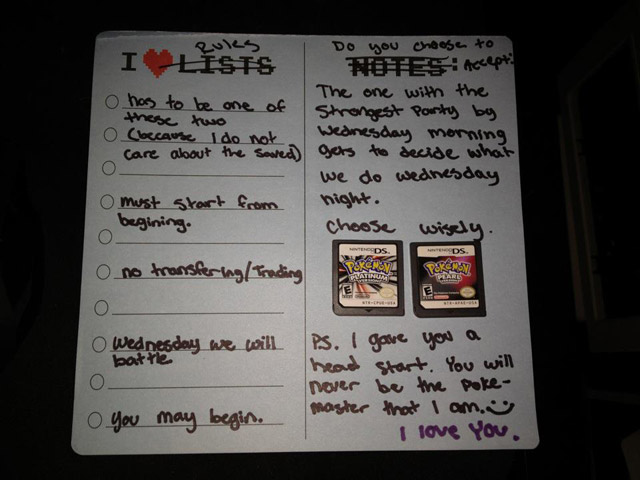 I ❤ LISTS
Rules
has to be one of
these two
(because I do not
care about the saved)
must start from
begining.
no transfering/Trading
Wednesday we will
battle
You may begin.
Do you choose to
NOTES: Accept:
The one with the
Strongest Party by
Wednesday morning
gets to decide what
we do wednesday
night.
Choose wisely.
NINTENDO DS
POKéMON
PLATINUM
VERSION
E
NTR-CPUE-USA
NINTENDO DS
POKéMON
PEARL
VERSION
E
NTR-APAE-USA
PS. I gave you a
head start. You will
never be the Poke-
master that I am.
I love You.